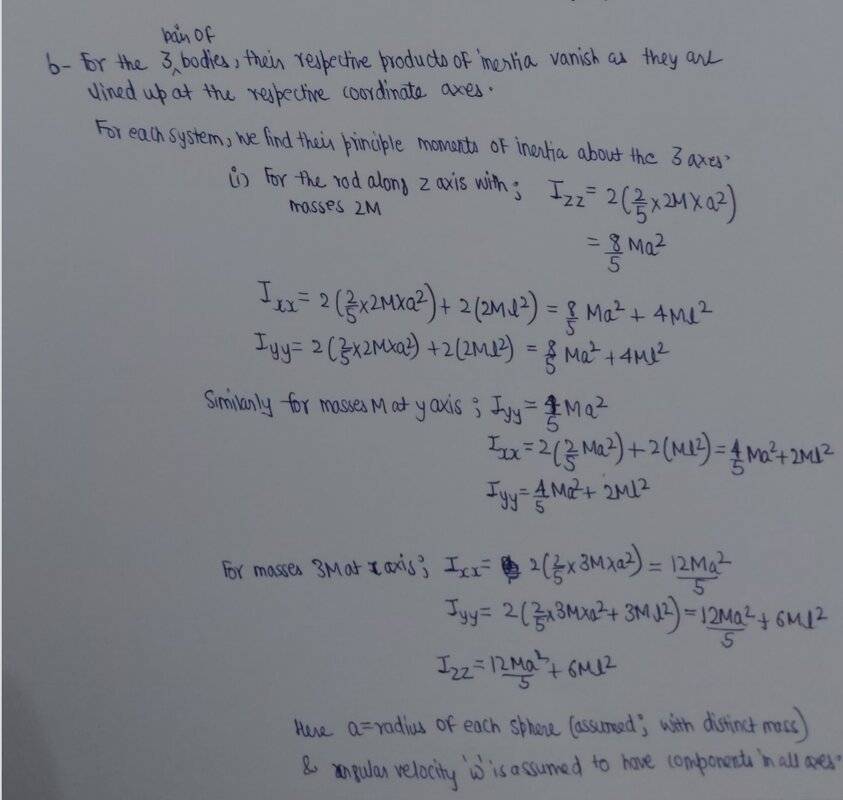 pair of
b- For the 3 ^ bodies, their respective products of inertia vanish as they are
lined up at the respective coordinate axes.
For each system, we find their principle moments of inertia about the 3 axes.
(i) For the rod along z axis with; I_zz = 2(2/5 × 2M × a²)
masses 2M
= 8/5 Ma²
I_xx = 2(2/5 × 2M × a²) + 2(2Ml²) = 8/5 Ma² + 4Ml²
I_yy = 2(2/5 × 2M × a²) + 2(2Ml²) = 8/5 Ma² + 4Ml²
Similarly for masses M at y axis; I_yy = 4/5 Ma²
I_xx = 2(2/5 Ma²) + 2(Ml²) = 4/5 Ma² + 2Ml²
I_yy = 4/5 Ma² + 2Ml²
For masses 3M at x axis; I_xx = 2(2/5 × 3M × a²) = 12Ma²/5
I_yy = 2(2/5 × 3M × a² + 3Ml²) = 12Ma²/5 + 6Ml²
I_zz = 12Ma²/5 + 6Ml²
Here a = radius of each sphere (assumed; with distinct mass)
& angular velocity 'ω' is assumed to have components in all axes.